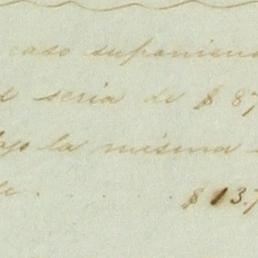 caso suponien
seria de $ 87
bajo la misma
$ 13.7